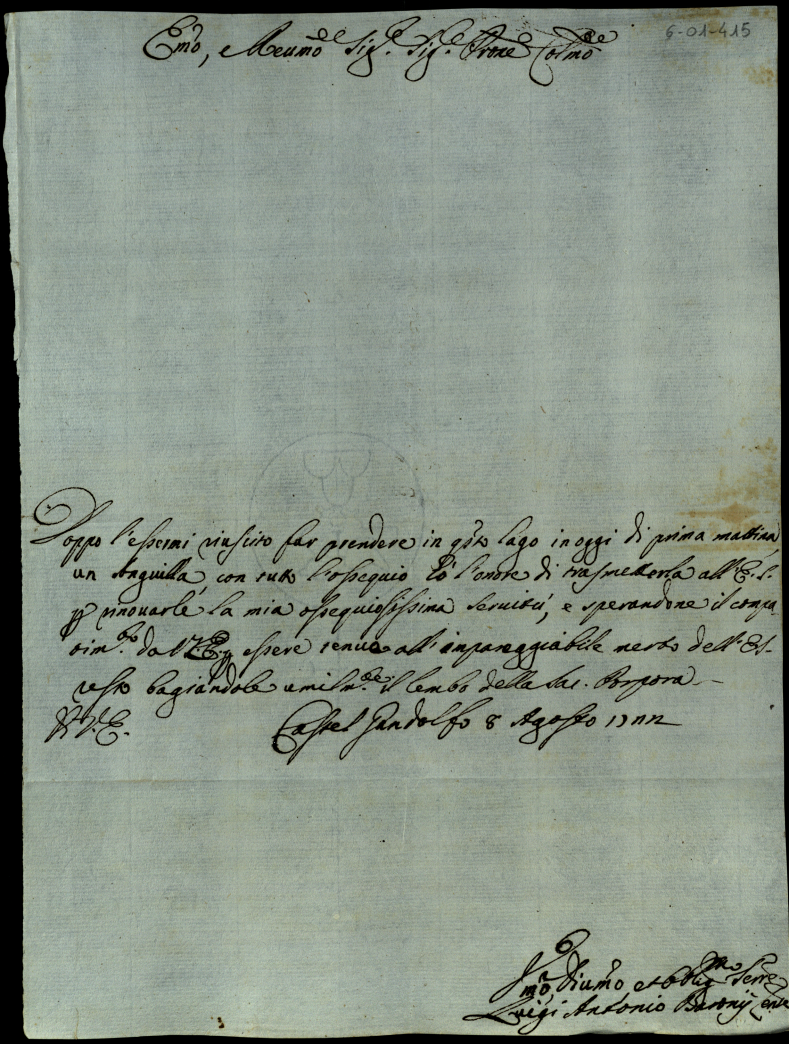 6-01-415
Emo, e Reumo Sig.r Sig.r Prone Colmo
Doppo l'essermi riuscito far prendere in qsto lago in oggi di prima mattina,
un Anguilla, con tutto l'ossequio hò l'onore di trasmetterla all'E. S.
p rinovarle la mia ossequiosissima seruitú, e sperandone il compa
tim.to da V.E. p essere tenue all'inpareggiabile merto dell'Es-
resto bagiandole umilm.te il lembo della Sac. Porpora -
D V.E. Castel Gandolfo 8 Agosto 1722
Vmo Diumo et Obligmo Serre
Luigi Antonio Baronij